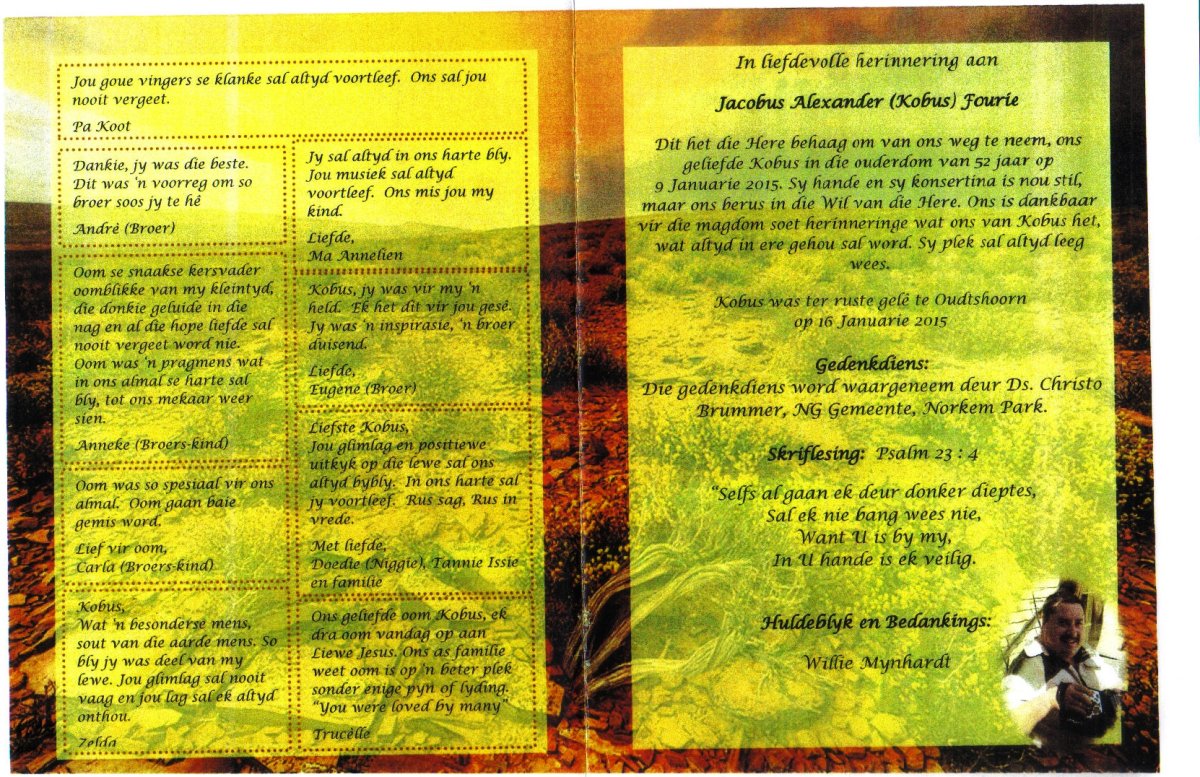 Jou goue vingers se klanke sal altyd voortleef. Ons sal jou
nooit vergeet.
Pa Koot
Dankie, jy was die beste.
Dit was 'n voorreg om so
broer soos jy te hê
Andrè (Broer)
Oom se snaakse kersvader
oomblikke van my kleintyd,
die donkie geluide in die
nag en al die hope liefde sal
nooit vergeet word nie.
Oom was 'n pragmens wat
in ons almal se harte sal
bly, tot ons mekaar weer
sien.
Anneke (Broers-kind)
Oom was so spesiaal vir ons
almal. Oom gaan baie
gemis word.
Lief vir oom,
Carla (Broers-kind)
Kobus,
Wat 'n besonderse mens,
sout van die aarde mens. So
bly jy was deel van my
lewe. Jou glimlag sal nooit
vaag en jou lag sal ek altyd
onthou.
Zelda
Jy sal altyd in ons harte bly.
Jou musiek sal altyd
voortleef. Ons mis jou my
kind.
Liefde,
Ma Annelien
Kobus, jy was vir my 'n
held. Ek het dit vir jou gesê.
Jy was 'n inspirasie, 'n broer
duisend.
Liefde,
Eugene (Broer)
Liefste Kobus,
Jou glimlag en positiewe
uitkyk op die lewe sal ons
altyd bybly. In ons harte sal
jy voortleef. Rus sag, Rus in
vrede.
Met liefde,
Doedie (Niggie), Tannie Issie
en familie
Ons geliefde oom Kobus, ek
dra oom vandag op aan
Liewe Jesus. Ons as familie
weet oom is op 'n beter plek
sonder enige pyn of lyding.
"You were loved by many"
Trucèlle
In liefdevolle herinnering aan
Jacobus Alexander (Kobus) Fourie
Dit het die Here behaag om van ons weg te neem, ons
geliefde Kobus in die ouderdom van 52 jaar op
9 Januarie 2015. Sy hande en sy konsertina is nou stil,
maar ons berus in die Wil van die Here. Ons is dankbaar
vir die magdom soet herinneringe wat ons van Kobus het,
wat altyd in ere gehou sal word. Sy plek sal altyd leeg
wees.
Kobus was ter ruste gelê te Oudtshoorn
op 16 Januarie 2015
Gedenkdiens:
Die gedenkdiens word waargeneem deur Ds. Christo
Brummer, NG Gemeente, Norkem Park.
Skriflesing: Psalm 23 : 4
"Selfs al gaan ek deur donker dieptes,
Sal ek nie bang wees nie,
Want U is by my,
In U hande is ek veilig.
Huldeblyk en Bedankings:
Willie Mynhardt